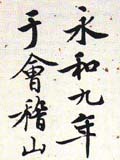 永和九年
于會稽山